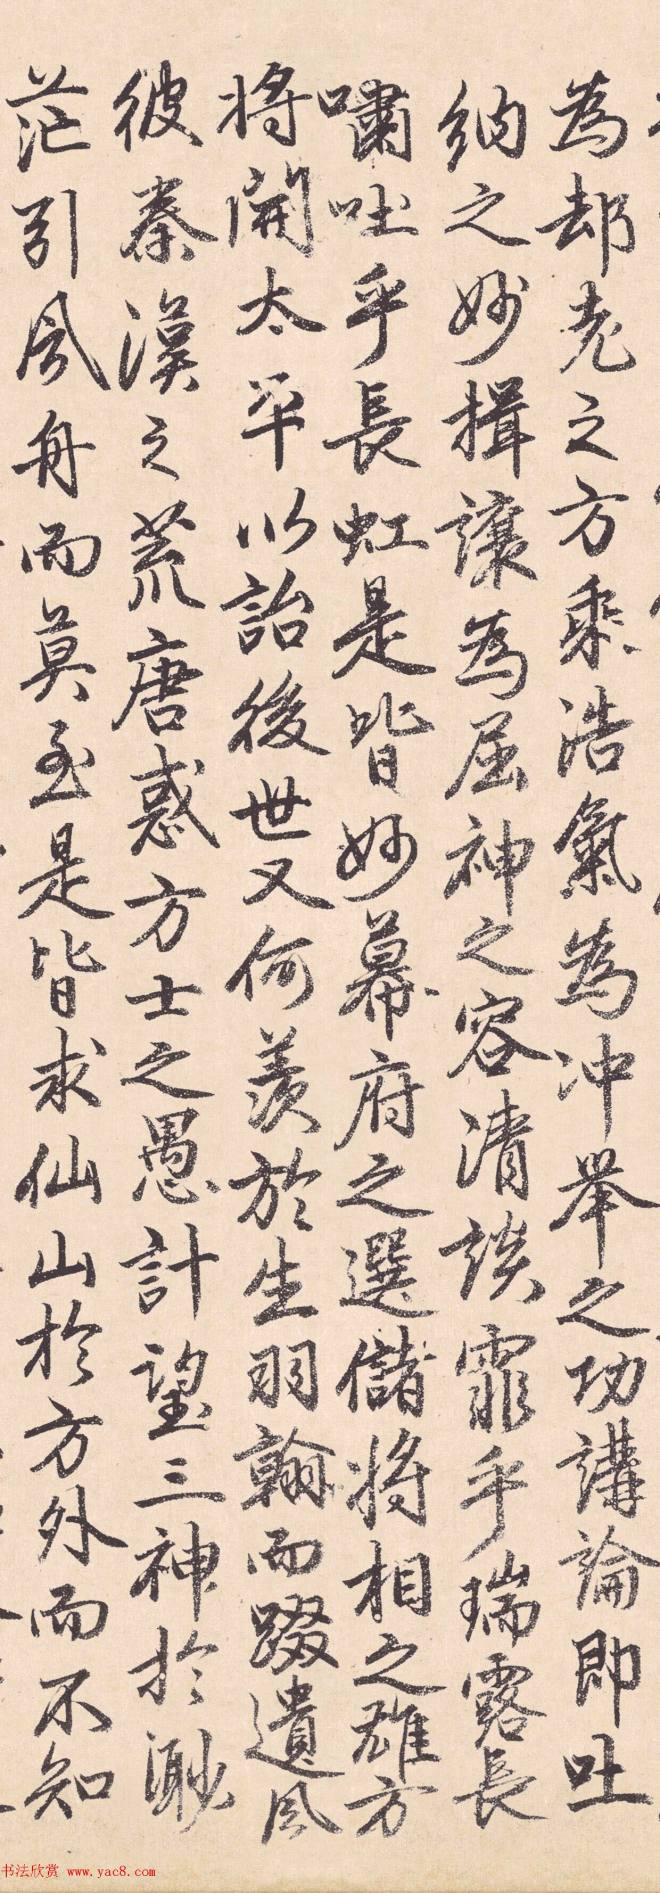 為却老之方乘浩氣為冲举之功講論即吐
納之妙揖讓為屈神之容清談霏乎瑞露長
嘯吐乎長虹是皆妙幕府之選儲將相之雄方
将開太平以詒後世又何羨於生羽翰而躡遺風
彼秦漢之荒唐惑方士之愚計望三神於渺
茫引風舟而莫至是皆求仙山於方外而不知
书法欣赏 www.yac8.com